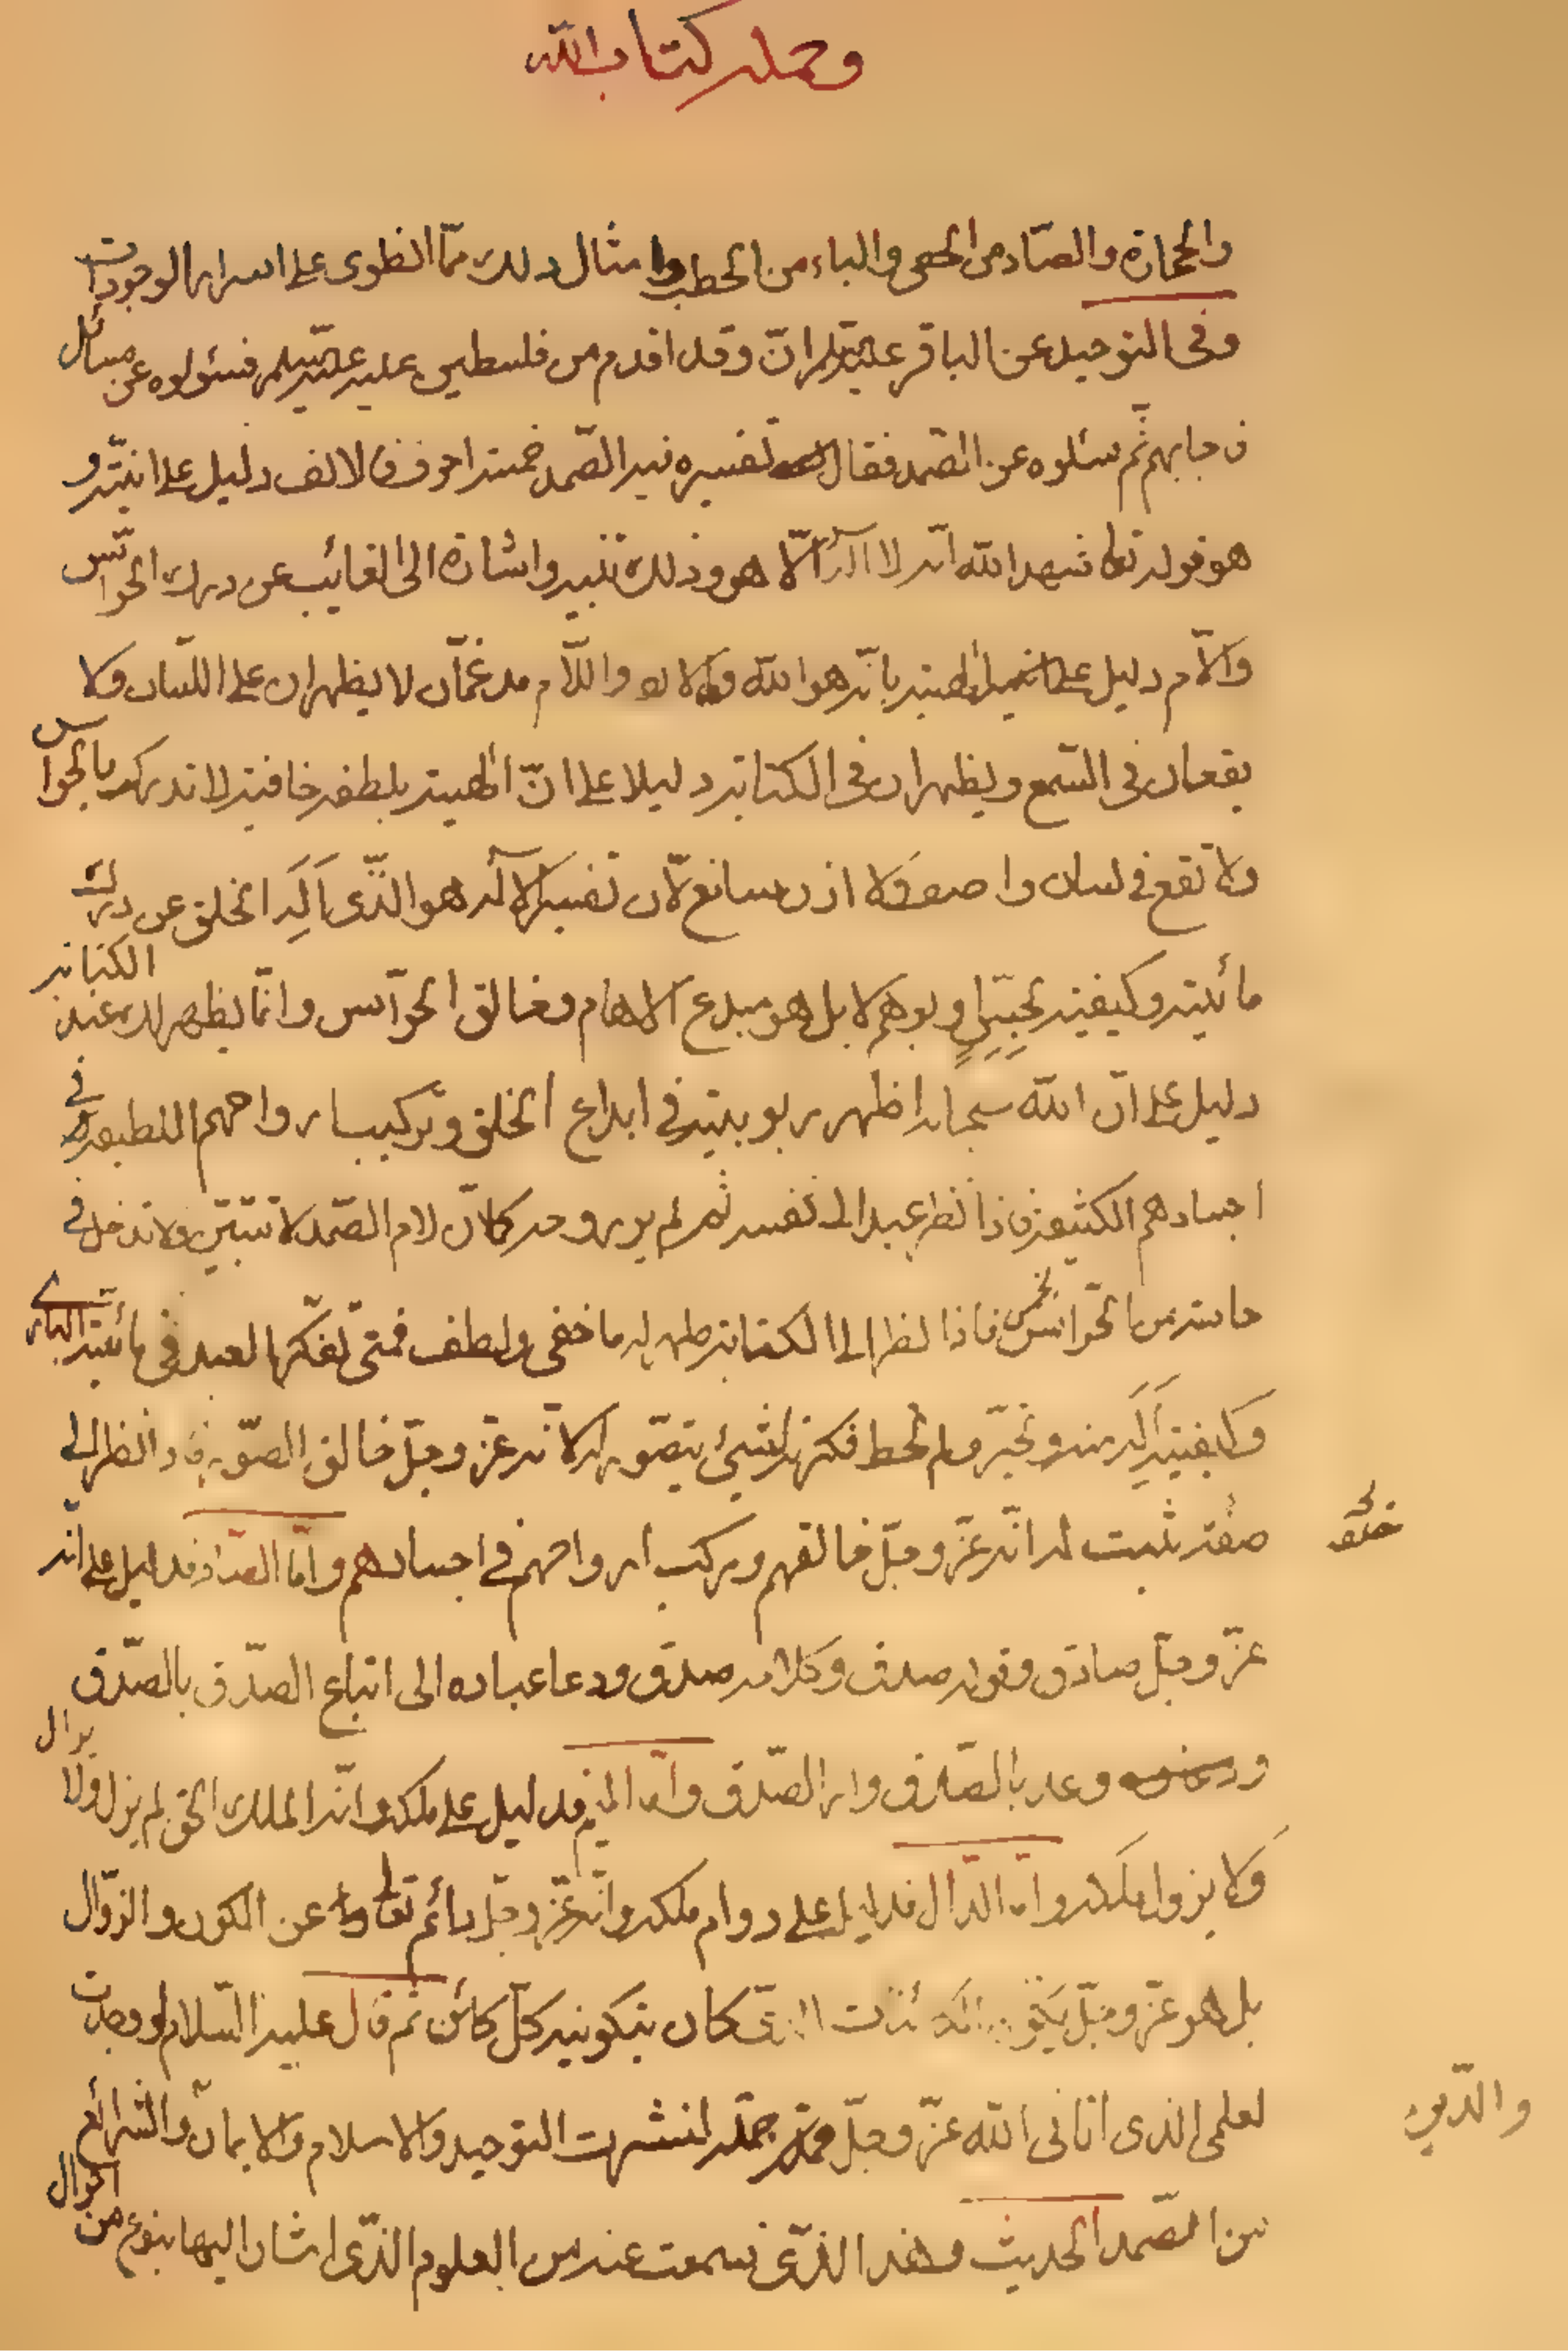 وحمله كتاب الله
والحجارة والصاد من الحصى والباء من الحطب وامثال ذلك ممّا انطوى على اسرار الموجودات
وفى التوحيد عن الباقر عليه السلم انّ وفدا قدم من فلسطين عليه عليه السلم فسئلوه عن مسائل
فاجابهم ثم سئلوه عن الصّمد فقال تفسيره فيه الصّمد خمسة احرف فالالف دليل على انيّته و
هو قوله تعالى شهد الله انّه لا اله الّا هو وذلك تنبيه واشارة الى الغائب عن درك الحواسّ
والّلام دليل على الهيته بانّه هو الله والالف واللّام مدغمان لا يظهران على اللّسان ولا
يقعان فى السّمع ويظهران فى الكتابة دليلا على انّ الهيته بلطفه خافية لا تدرك بالحواس
ولا تقع فى لسان واصف ولا اذن سامع لانّ تفسير الاله هو الّذى اَلِهَ الخلق عن درك
مائيّته وكيفيته بحسّ او بوهم لا بل هو مبدع الاوهام وخالق الحواسّ وانّما يظهر ذلك عند الكتابة
دليل على انّ الله سبحانه اظهر ربوبيته فى ابداع الخلق وتركيب ارواحهم اللطيفة فى
اجسادهم الكثيفة فاذا نظر عبد الى نفسه ثم لم ير روحه كما انّ لام الصّمد لا تتبيّن ولا تدخل فى
حاسة من الحواسّ الخمس فاذا نظر الى الكتابة ظهر له ما خفى ولطف فمتى تفكّر العبد فى مائيّة البارى
وكيفيته اَلِهَ منه وتحيّر ولم تحط فكرته بشىء يتصوّر له لانّه عزّ وجلّ خالق الصّور فاذا نظر الى
خلقه
صفته ثبت له انّه عزّ وجلّ خالقهم ومركب ارواحهم فى اجسادهم وامّا الصّاد فدليل على انّه
عزّ وجلّ صادق وقوله صدق وكلامه صدق ودعا عباده الى اتباع الصّدق بالصّدق
ووعد بالصّدق دار الصّدق وامّا الميم فدليل على ملكه وانّه الملك الحق لم يزل ولا يزال
ولا يزول ملكه وامّا الدّال فدليل على دوام ملكه وانّه عزّ وجلّ دائم تعالى عن الكون والزّوال
بل هو عزّ وجلّ يكوّن الكائنات الذى كان بتكوينه كلّ كائن ثم قال عليه السّلام لو وجدت
لعلمى الذى اتانى الله عزّ وجلّ حملة لنشرت التوحيد والاسلام والايمان والشرائع
والدّين
من الصّمد الحديث وهذا الذّى سمعت عنه من العلوم الذّى اشار اليها بنوع من اقوال